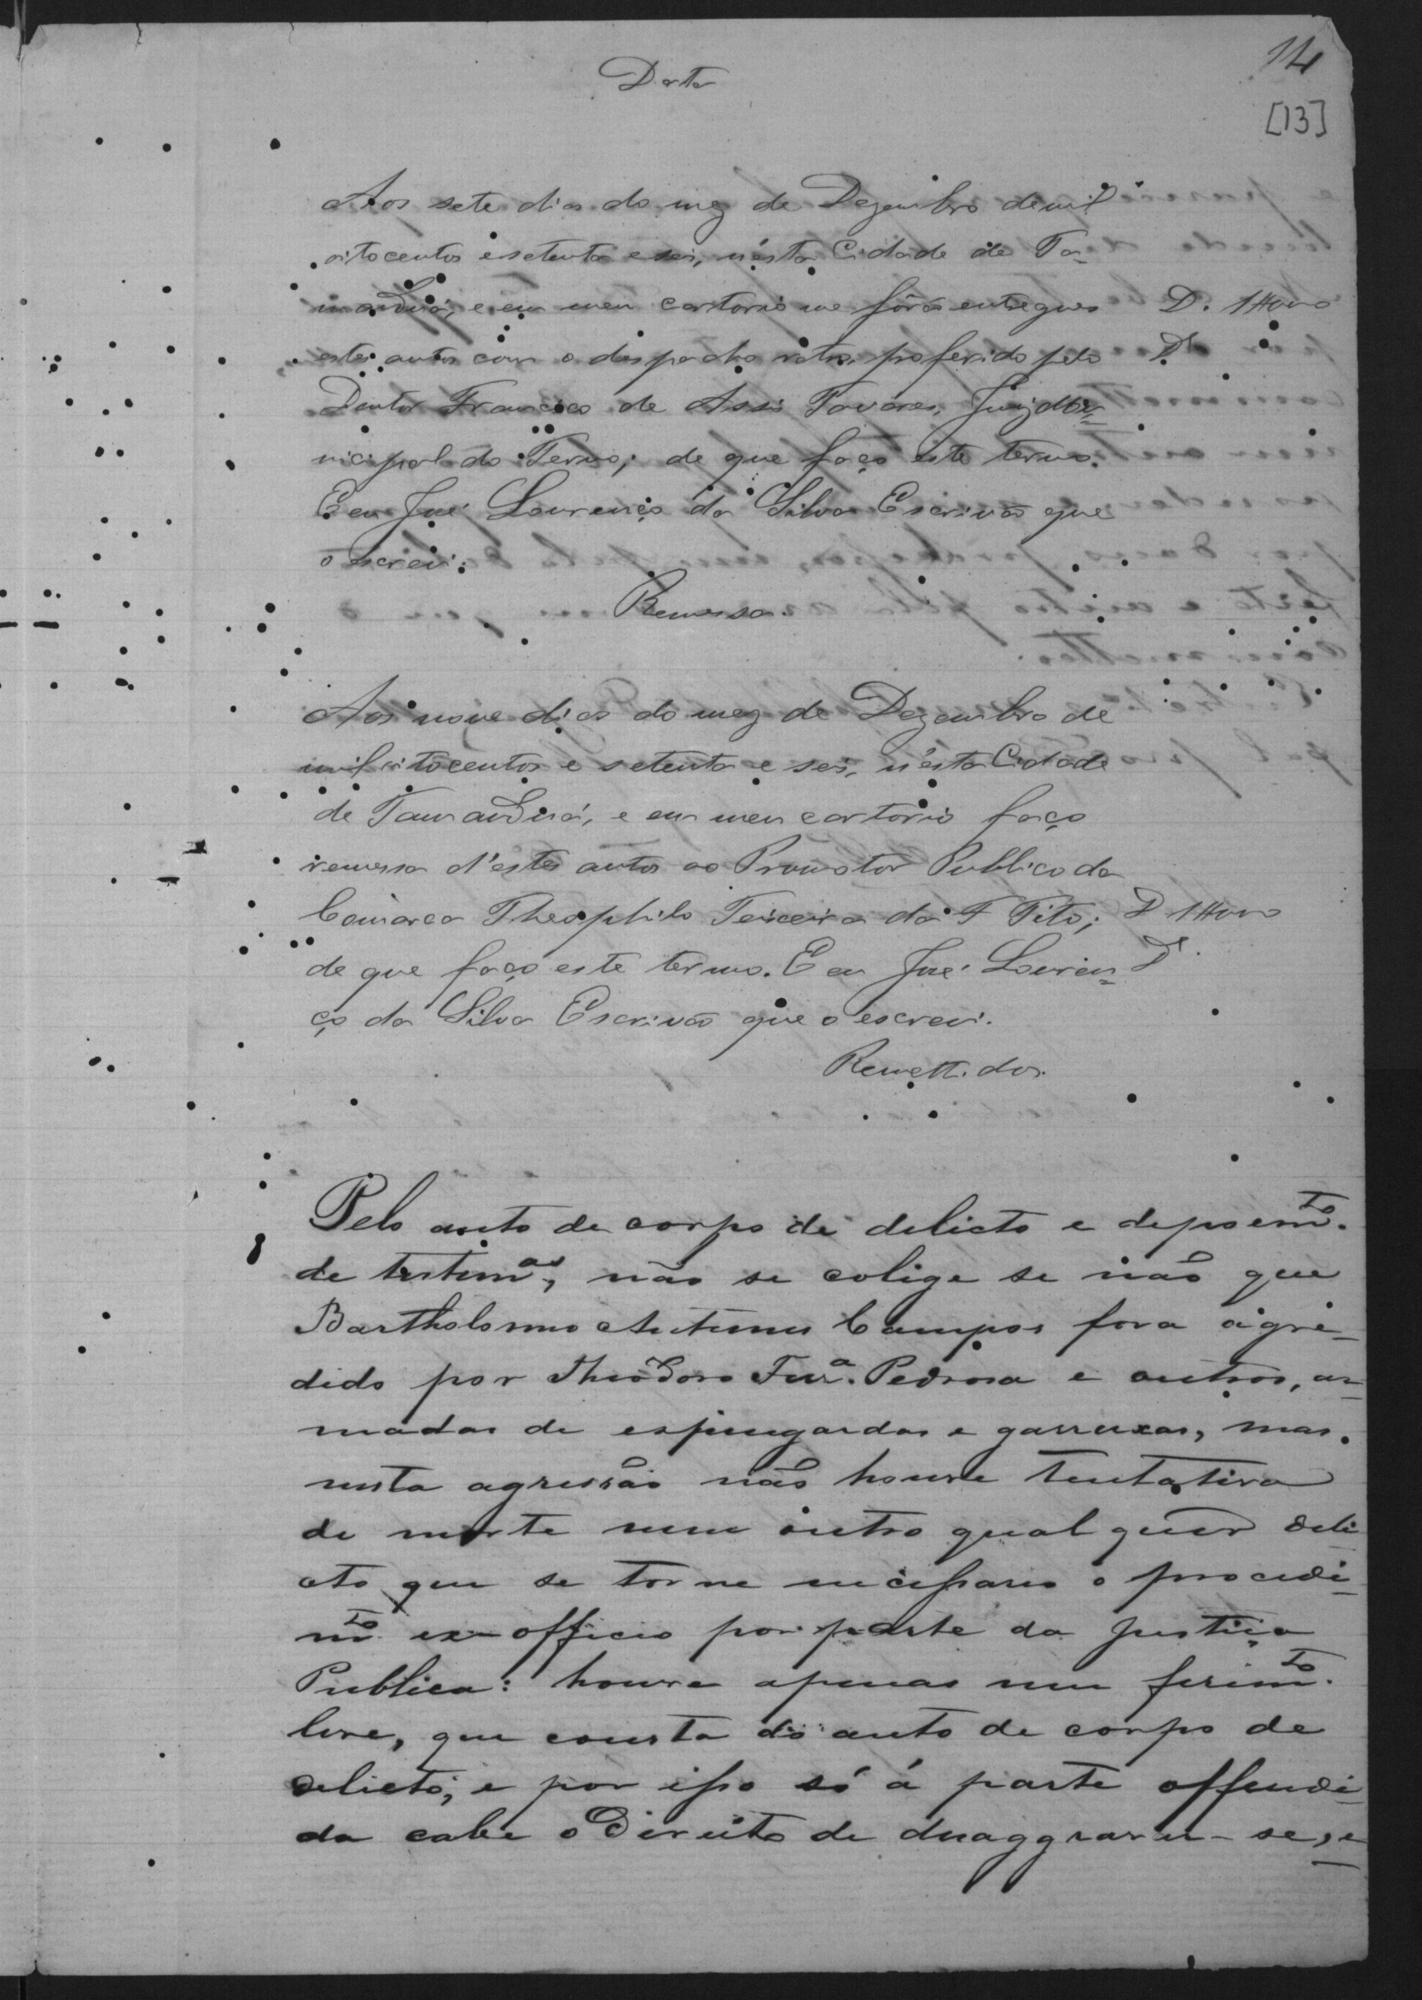 14
[13]
Data
Aos sete dias do mez de Dezembro de mil
oitocentos e setenta e seis, n'ésta Cidade de Ta-
manduá, e em meu cartorio me fôrão entregues
estes autos com o despacho retro, proferido pelo
Doutor Francisco de Assis Tavares, Juiz Mu-
nicipal do Termo; de que faço este termo.
E eu José Lourenço da Silva Escrivão que
o escrevi.
Remessa.
Aos nove dias do mez de Dezembro de
mil oitocentos e setenta e seis, n'ésta Cidade
de Tamanduá, e em meu cartorio faço
remessa d'estes autos ao Promotor Publico da
Comarca Theophilo Teixeira da F Tito;
de que faço este termo. E eu José Louren-
ço da Silva Escrivão que o escrevi.
Remettidos.
Pelo auto de corpo de delicto e depoemto.
de testimas, não se colige se não que
Bartholomeo Antunes Campos fora agre-
dido por Theodoro Fura. Pedrosa e outros, ar-
mados de espingardas e garruxas, mas,
nesta agressão não houve tentativa
de morte nem outro qual quer deli-
cto que se torne necessario o procedi-
mto ex-officio por parte da Justiça
Publica: houve apenas um ferimto.
leve, que consta do auto de corpo de
delicto; e por isso só á parte offendi-
da cabe o Direito de desaggravar-se, e